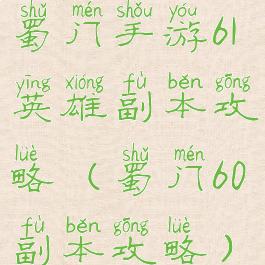 shǔ mén shǒu yóu
蜀门手游61
yīng xióng fù běn gōng
英雄副本攻
lüè shǔ mén
略(蜀门60
fù běn gōng lüè
副本攻略)